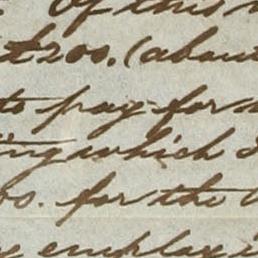 Of this
£200. (about
to pay for
which I
00. for the
employ